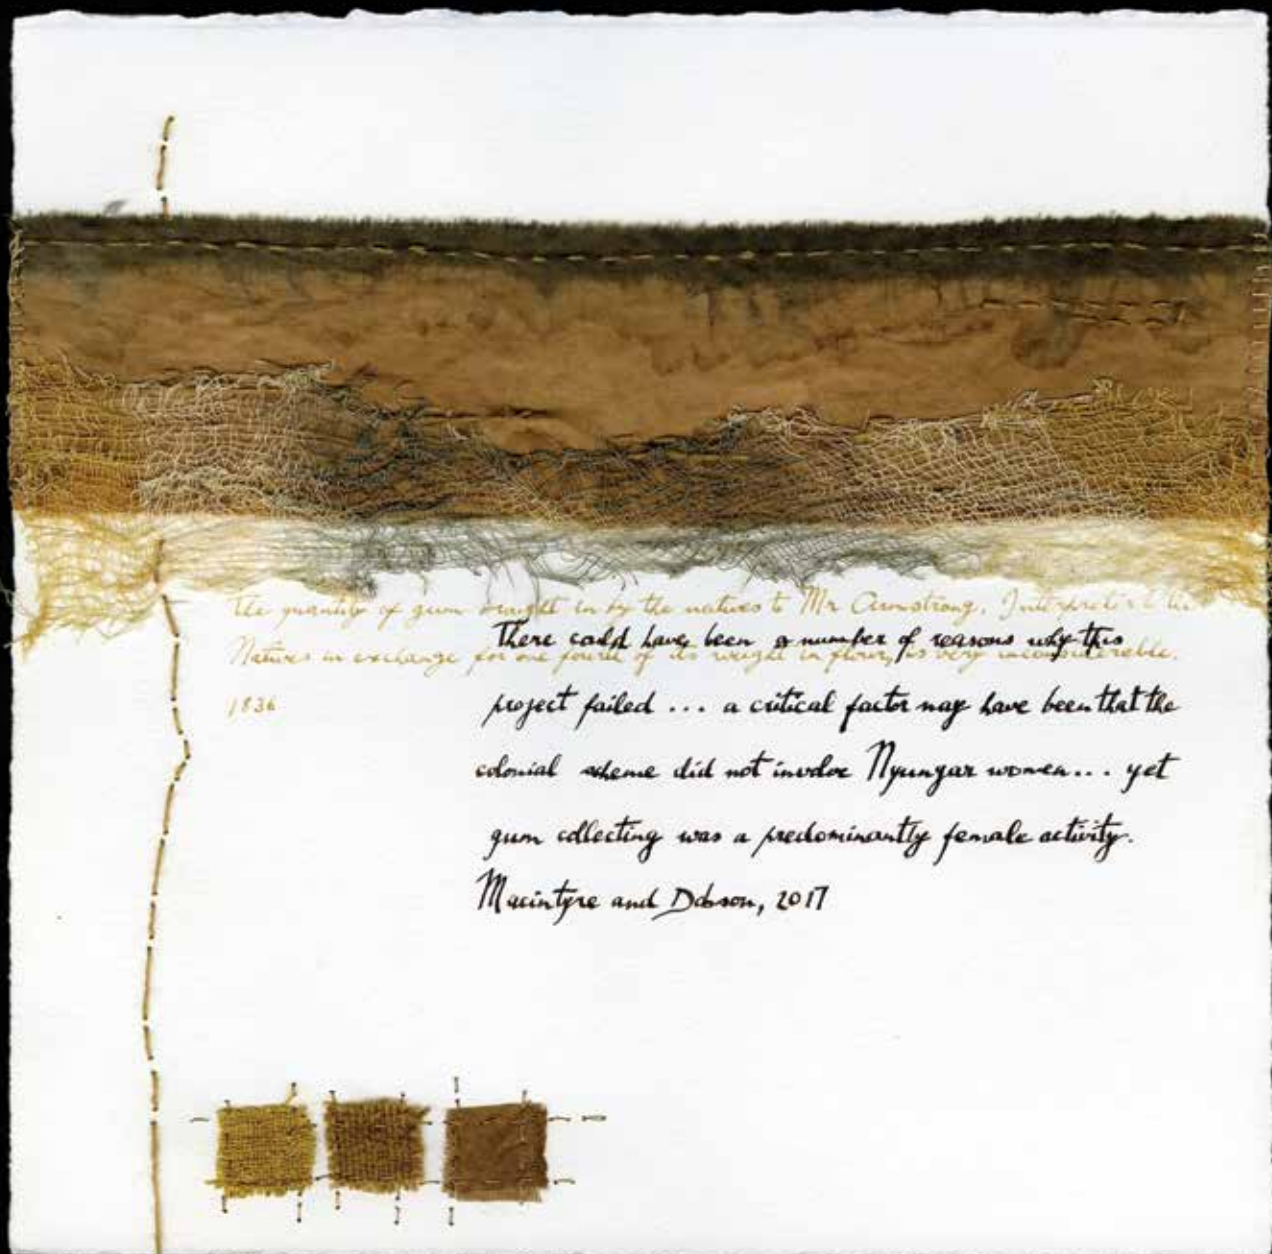 The quantity of gum brought in by the natives to Mr Armstrong, Interpreter to the
Natives in exchange for one fourth of its weight in flour, is very inconsiderable.
1836
There could have been a number of reasons why this
project failed ... a critical factor may have been that the
colonial scheme did not involve Nyungar women... yet
gum collecting was a predominantly female activity.
Macintyre and Dobson, 2017